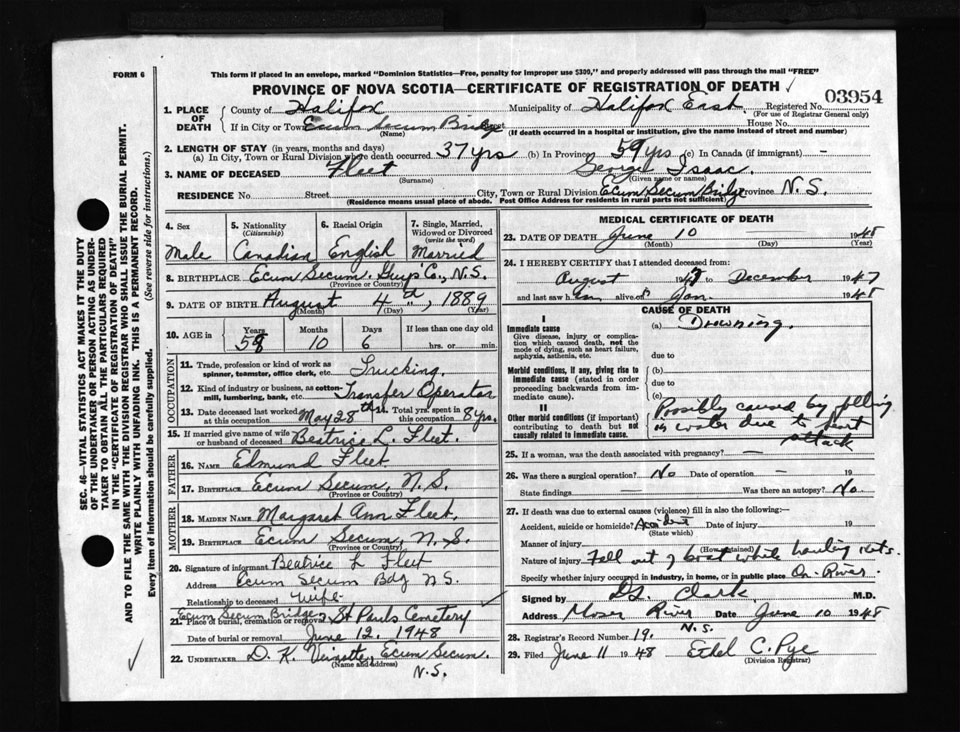 FORM 6
This form if placed in an envelope, marked "Dominion Statistics—Free, penalty for improper use $300," and properly addressed will pass through the mail "FREE"
PROVINCE OF NOVA SCOTIA—CERTIFICATE OF REGISTRATION OF DEATH
03954
1. PLACE OF DEATH
County of Halifax Municipality of Halifax East. Registered No.
(For use of Registrar General only)
If in City or Town Ecum Secum Bridge Street House No.
(Name) (If death occurred in a hospital or institution, give the name instead of street and number)
2. LENGTH OF STAY (in years, months and days)
(a) In City, Town or Rural Division where death occurred 37 yrs (b) In Province 59 yrs (c) In Canada (if immigrant) —
3. NAME OF DECEASED Fleet George Isaac.
(Surname) (Given name or names)
RESIDENCE No. Street City, Town or Rural Division Ecum Secum Bridge Province N.S.
(Residence means usual place of abode. Post Office Address for residents in rural parts not sufficient)
4. Sex 5. Nationality (Citizenship) 6. Racial Origin 7. Single, Married, Widowed or Divorced (write the word)
Male Canadian English Married
8. BIRTHPLACE Ecum Secum. Guys' Co., N.S.
(Province or Country)
9. DATE OF BIRTH August 4th, 1889
(Month) (Day) (Year)
10. AGE in Years Months Days If less than one day old
58 10 6 hrs. or min.
OCCUPATION
11. Trade, profession or kind of work as spinner, teamster, office clerk, etc. Trucking.
12. Kind of industry or business, as cotton-mill, lumbering, bank, etc. Transfer Operator
13. Date deceased last worked at this occupation May 28th 14. Total yrs. spent in this occupation 8 yrs.
15. If married give name of wife or husband of deceased Beatrice L. Fleet.
FATHER
16. NAME Edmund Fleet
17. BIRTHPLACE Ecum Secum, N.S.
(Province or Country)
MOTHER
18. MAIDEN NAME Margaret Ann Fleet.
19. BIRTHPLACE Ecum Secum, N.S.
(Province or Country)
20. Signature of informant Beatrice L Fleet
Address Ecum Secum Bdg N.S.
Relationship to deceased Wife
Ecum Secum Bridge
21. Place of burial, cremation or removal St Pauls Cemetery
Date of burial or removal June 12, 1948
22. UNDERTAKER D. K. Ecum Secum.
(Name and address)
N.S.
MEDICAL CERTIFICATE OF DEATH
23. DATE OF DEATH June 10 1948
(Month) (Day) (Year)
24. I HEREBY CERTIFY that I attended deceased from:
August 1947 to December 1947
and last saw him alive on Jan 1948
CAUSE OF DEATH
I
Immediate cause (a) Drowning.
Give disease, injury or complication which caused death, not the mode of dying, such as heart failure, asphyxia, asthenia, etc.
due to
Morbid conditions, if any, giving rise to immediate cause (stated in order proceeding backwards from immediate cause).
(b)
due to
(c)
II
Other morbid conditions (if important) contributing to death but not causally related to immediate cause.
Possibly caused by falling in water due to heart attack
25. If a woman, was the death associated with pregnancy? —
26. Was there a surgical operation? No Date of operation — 19
State findings — Was there an autopsy? No
27. If death was due to external causes (violence) fill in also the following:—
Accident, suicide or homicide? Accident Date of injury 19
(State which)
Manner of injury
(How sustained)
Nature of injury Fell out of boat while hauling nets.
Specify whether injury occurred in industry, in home, or in public place On River.
Signed by D.L. Clark M.D.
Address Moser River Date June 10 1948
N.S.
28. Registrar's Record Number 19.
29. Filed June 11 1948 Ethel C. Pye
(Division Registrar)
SEC. 46—VITAL STATISTICS ACT MAKES IT THE DUTY
OF THE UNDERTAKER OR PERSON ACTING AS UNDER-
TAKER TO OBTAIN ALL THE PARTICULARS REQUIRED
IN THE "CERTIFICATE OF REGISTRATION OF DEATH"
AND TO FILE THE SAME WITH THE DIVISION REGISTRAR WHO SHALL ISSUE THE BURIAL PERMIT.
WRITE PLAINLY WITH UNFADING INK. THIS IS A PERMANENT RECORD.
Every item of information should be carefully supplied. (See reverse side for instructions.)